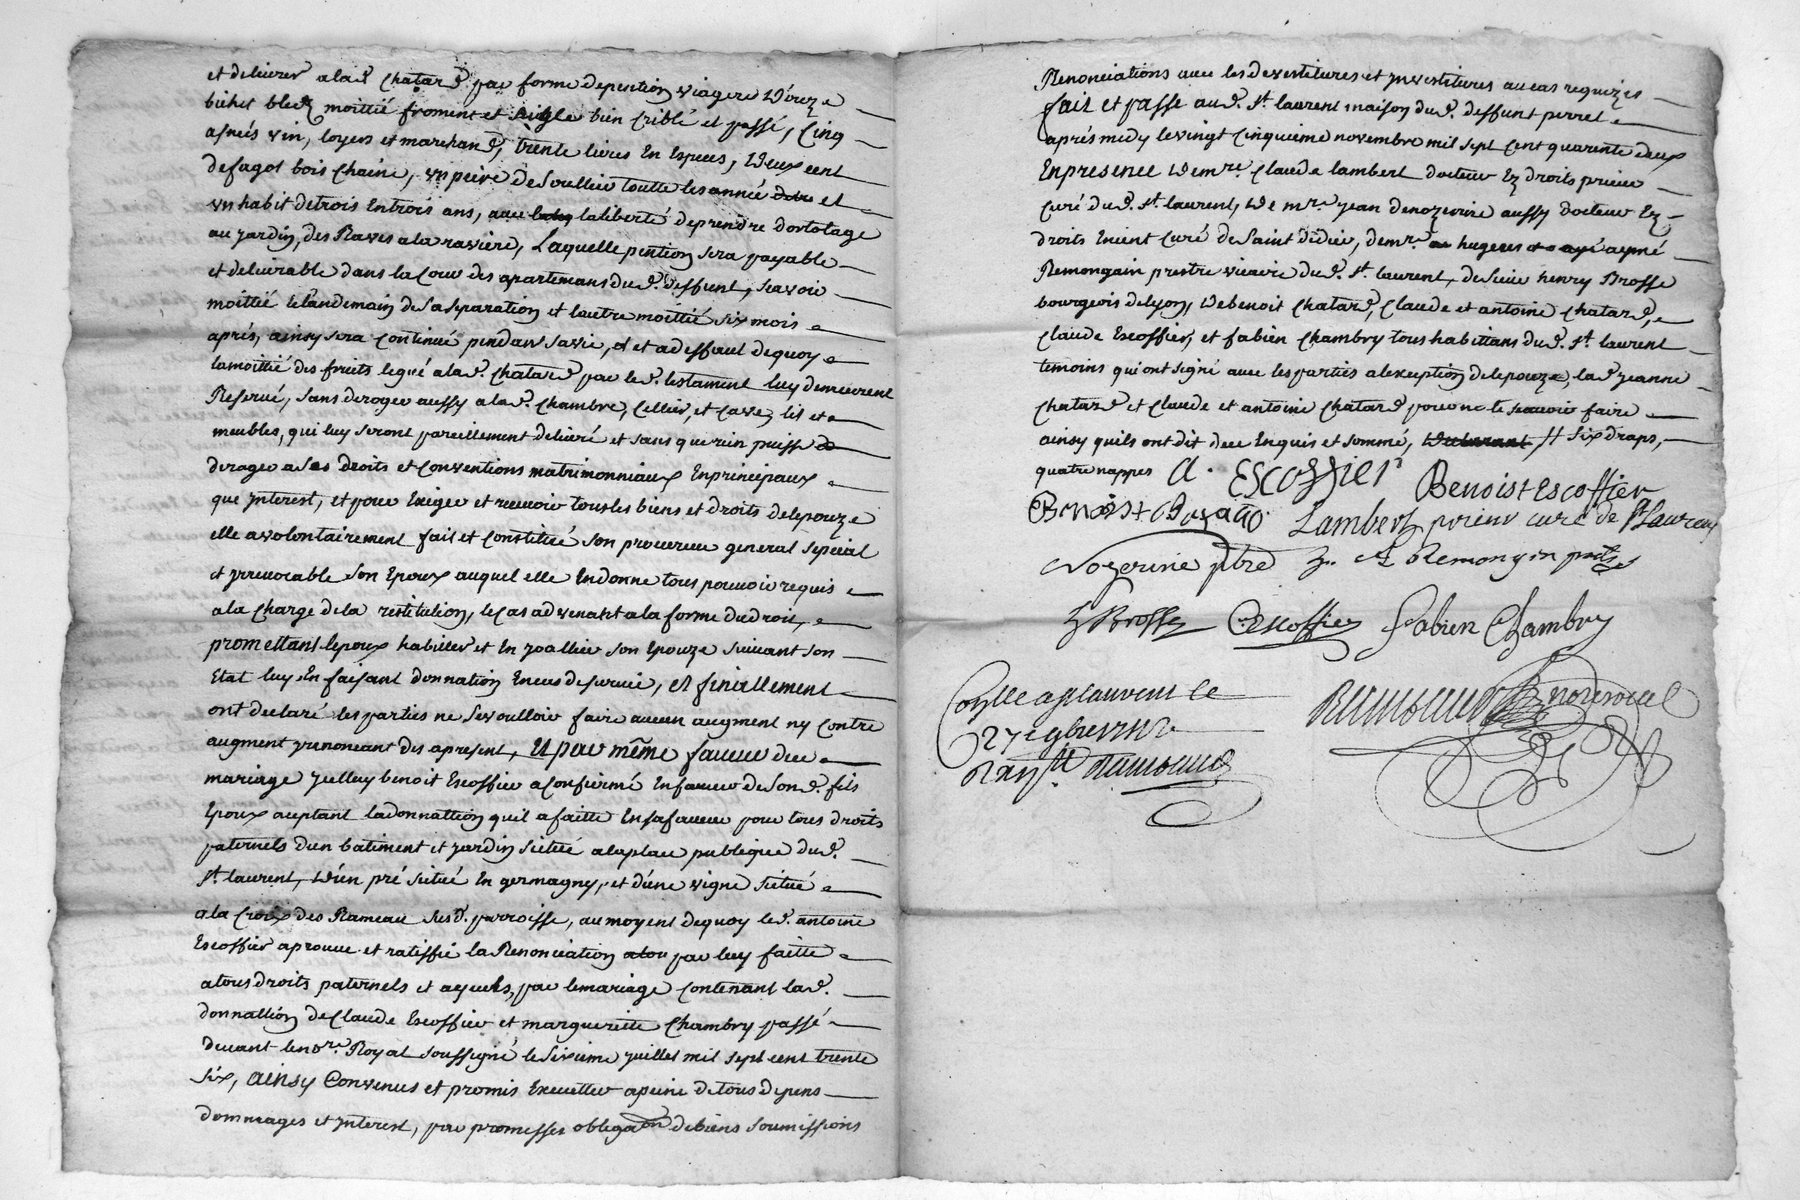 et delivrer a lad. Chatard par forme de pention viagere d'onze
bichet bled moittié froment et seigle bien criblé et passé, Cinq
asnéés vin, loyers et marchand, trente livres En Especes, deux cent
de fagot bois chaine, un peire de soullier toutte les année et
un habit de trois En trois ans, avec la liberté de prendre dortolage
au jardin, des Raves a la raviere, Laquelle pention sera payable
et delivrable dans la Cour des apartemans dud. deffunt, scavoir
moittié le landemain de sa separation et lautre moittié six mois
aprés, ainsy sera Continué pendant sa vie, et a deffaut de quoy
la moittié des fruits legué a lad. Chatard par led. testament luy demeurent
Reservé, sans deroger aussy a lad. Chambre, Cellier, et Cave, lit et
meubles, qui luy seront pareillement delivré et sans que rien puisse
deroger a ses droits et Conventions matrimonniaux En principaux
que Interest, et pour Exiger et recevoir tous les biens et droits de lepouze
elle a volontairement fait et Constitué son procureur general special
et yrrevocable son Epoux auquel elle En donne tous pouvoir requis
a la Charge de la restitution, le cas advenant a la forme du droit,
promettant lepoux habiller et En joallier son Epouze suivant son
Etat luy En faisant donnation En cas de survie, et finallement
ont declaré les parties ne se voulloir faire aucun augment ny Contre
augment y renoncant des apresent, et par même faveur du
mariage Jcelluy benoit Escoffier a Confirmé En faveur de sond. fils
Epoux acceptant la donnattion quil a faitte En sa faveur pour tous droits
paternels dun batiment et jardin scitué a la place publique dud.
St. laurent, d'un pré scitué En germagny, et d'une vigne scitué
a la Croix des Rameau susd. parroisse, au moyent de quoy led. antoine
Escoffier aprouve et ratiffie la Renonciation par luy faitte
a tous droits paternels et ayeuls, par le mariage Contenant lad.
donnattion de Claude Escoffier et marguerite Chambry passé
devant le nore. Royal soussigné le sixieme juillet mil sept cent trente
six, ainsy Convenus et promis Executter a peine de tous depens
dommages et Interest, par promesses obligaon de biens soumissions
Renonciations avec les devestitures et Investitures au cas requizes
fait et passe aud. St. laurent maison dud. deffunt perret
aprés midy le vingt Cinquieme novembre mil sept Cent quarente deux
En presence de mre. Claude lambert docteur Ez droits prieur
Curé dud. St. laurent, de mre. jean de nozerine aussy docteur Ez
droits Curé de Saint didier, de mre. hugues aymé
Remongain prestre vicaire dud. St. laurent, de sieur henry Brosse
bourgeois de lyon, de benoit Chatard, Claude et antoine Chatard,
Claude Escoffier, et fabien Chambry tous habittans dud. St. laurent
temoins qui ont signé avec les parties a lexception de lepouze, lad. jeanne
Chatard et Claude et antoine Chatard pour ne le scavoir faire
ainsy quils ont dit de ce Enquis et sommé, // six draps,
quatre nappes A. Escoffier Benoist escoffier
Benoist Lambert prieur curé de St Laurent
Nozerine ptre Remongin
h Brosse Escoffier Fabien Chambry